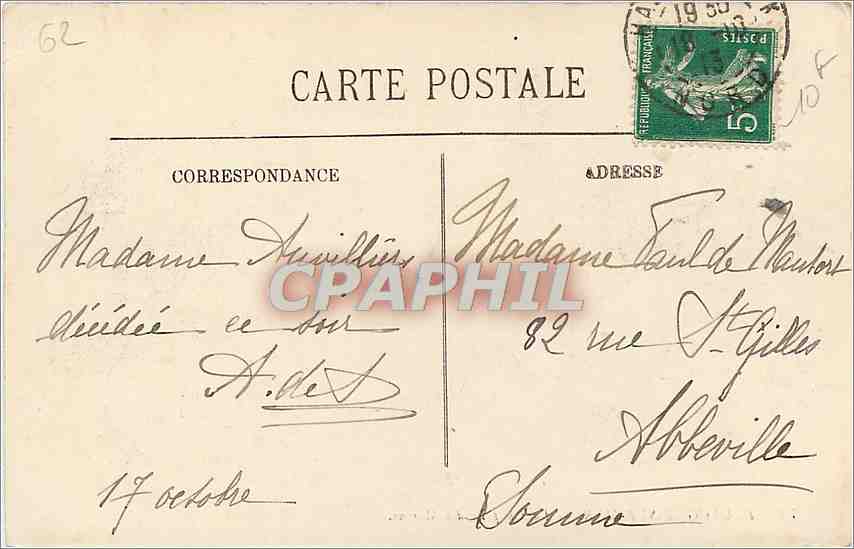 62
CARTE POSTALE
19 30
18 - 10
13
NORD
RÉPUBLIQUE FRANÇAISE
POSTES
5
10 F
CORRESPONDANCE
ADRESSE
Madame Auvilliers
décédée ce soir
A. de S
17 octobre
Madame Paul de Mautort
82 rue St Gilles
Abbeville
Somme
CPAPHIL